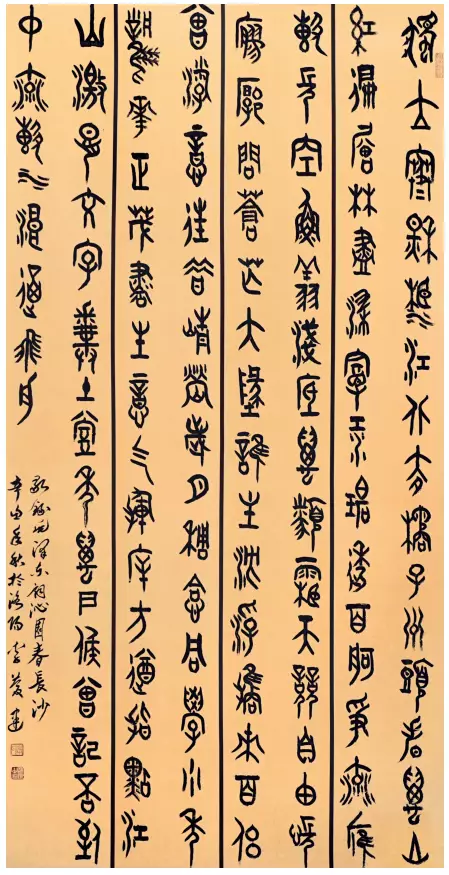 獨立寒秋湘江北去橘子州頭看萬山
紅遍層林盡染漫江碧透百舸爭流鷹
擊長空魚翔淺底萬類霜天競自由悵
寥廓問蒼茫大地誰主沈浮攜來百侶
曾游憶往昔崢嶸歲月稠恰同學少年
風華正茂書生意氣揮斥方遒指點江
山激揚文字糞土當年萬戶侯曾記否到
中流擊水浪遏飛舟
敬錄毛澤東詞沁園春長沙
辛丑年秋於洛陽李